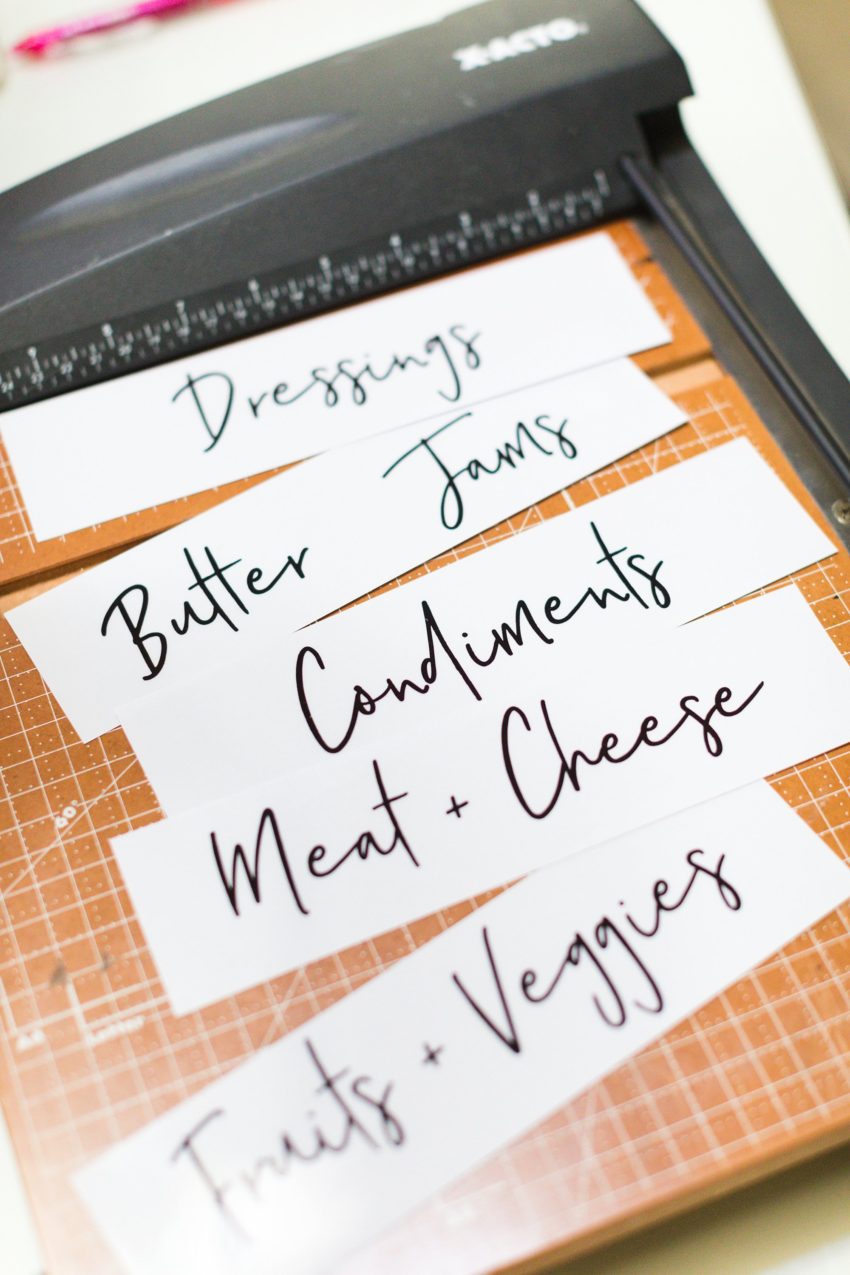 X-ACTO
Dressings
Butter Jams
Condiments
Meat + Cheese
Fruits + Veggies
60°
Letter